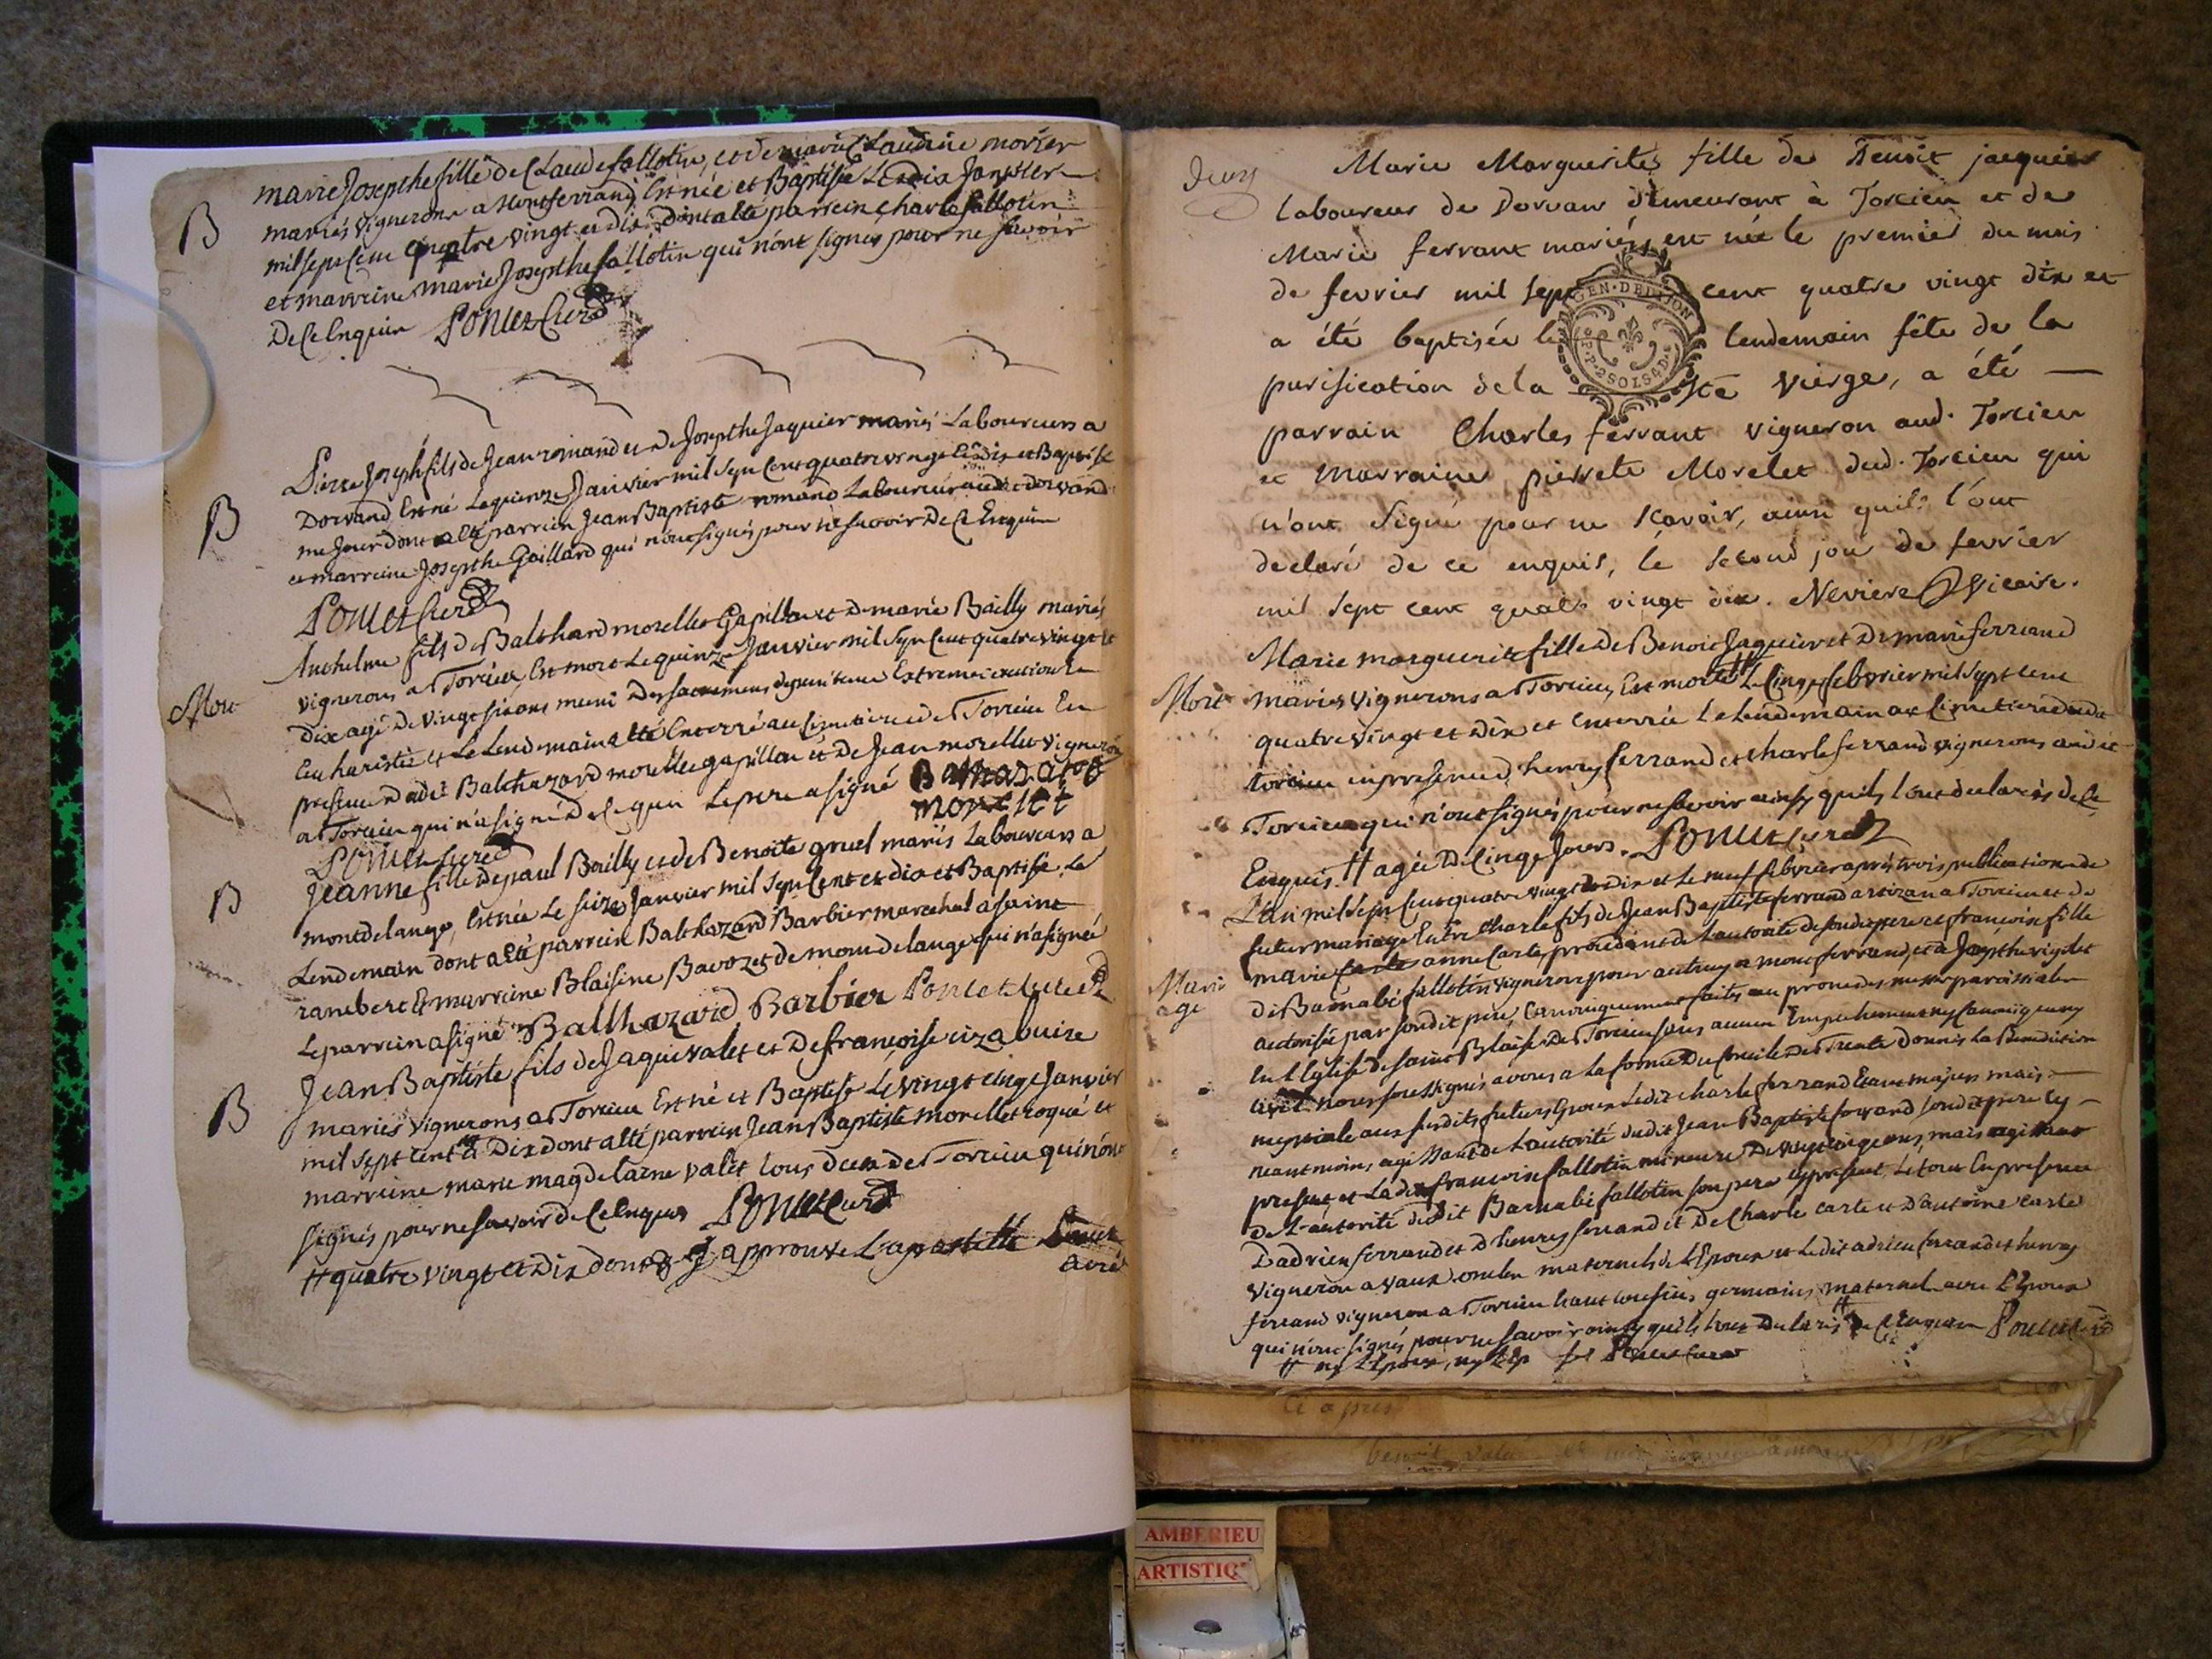 marie Josepthe fille de Claude fallotin, et de marie Claudine morier
B
mariés vignerons a Montferrand, Est née et Baptisé Le dix Janvier
mil sept cent quatre vingt et dix, dont a lté parrein charle fallotin
et marreine marie Josepthe fallotin qui n'ont signés pour ne scavoir
De ce Enquis Poncet Curé
Pierre Joseph fils de Jean romand et de Josepthe Jaquier mariés Laboureurs a
B
Dorvand Est né Le quinze Janvier mil sept cent quatre vingt et dix et Baptisé
me Jour dont a lté parrein Jean Baptiste romand Laboureur audit dorvand
et marreine Josepthe Gaillard qui n'ont signés pour ne scavoir De ce Enquis
Poncet Curé
Anthelme fils de Balthard morellet Gapillon et de marie Bailly mariés
vignerons a Torcieu, Est mort Le quinze Janvier mil sept cent quatre vingt et
Mort
Dix agé De vingt six ans muni Des sacremens de penitence Extreme onction Et
Eucharistie et Le Lendemain a lté Enterré au Cimetiere de Torcieu En
presence dudit Balthazard morellet gapillon et De Jean morellet vigneron
a Torcieu qui n'a signé De ce enquis Le pere a signé Balthazard
morellet
Poncet Curé
B
Jeanne fille de paul Bailly et de Benoite gruel mariés Laboureurs a
montdelange, Est née Le seize Janvier mil sept Cent et dix et Baptisé Le
Lendemain dont a lté parrein Balthazard Barbier marechal a saint
rambert Et marreine Blaisine Bavozet de mont de lange qui n'a signée
Le parrein a signé Balthazard Barbier Poncet Curé
Jean Baptiste fils de Jaque valet et De francoise
B
mariés vignerons a Torcieu Est né et Baptisé Le vingt cinq Janvier
mil sept cent # et Dix dont a lté parrein Jean Baptiste morellet roqué et
marreine marie magdelaine valet tous deux de Torcieu qui n'ont
signés pour ne scavoir de ce Enquis Poncet Curé
# quatre vingt et Dix dont J'approuve L'apostille Poncet
curé
Marie Marguerite, fille de Benoit jacquier
laboureur de Dorvan demeurant à Torcieu et de
Marie ferrant mariés, est née le premier du mois
de fevrier mil sept cent quatre vingt dix et
GEN·DE DIJON
a été baptisée le lendemain fête de la
P·P·2 SOLS 4 D·
purification de la Ste Vierge, a été —
parrain Charles ferrant vigneron aud. Torcieu
et Marraine pierrete Morelet dud. Torcieu qui
n'ont signé pour ne scavoir, ainsi quils l'ont
declaré de ce enquis, le second jour de fevrier
mil sept cent quatre vingt dix. Neviere Vicaire.
Marie marguerite fille de Benoit Jaquier et De marie ferrand
Mort
mariés vignerons a Torcieu, Est morte # Le cinq febvrier mil sept cent
quatre vingt et Dix et enterrée Le Lendemain au Cimetiere dudit
torcieu en presence d'henry ferrand et charle ferrand vignerons audit
Torcieu qui n'ont signés pour ne scavoir ainsy quils L'ont declarés de ce
Enquis. # agée De Cinq Jours. Poncet Curé
L'an mil sept Cent quatre vingt et Dix et Le neuf febvrier après trois publications de
futur mariage Entre charle fils de Jean Baptiste ferrand artizan a Torcieu et de
marie anne Carle, procedant de L'autorité de sondit pere et francoise fille
Mari
age
de Barnabé fallotin vigneron pour autruy a montferrand, et de Josepthe
autorisée par sondit pere Canoniquement faites au prone des messes paroissiale
En L'Eglise de saint Blaise De Torcieu sans aucun Empechement ny Canonique ny
civil nous soussignés avons a La forme Du Concile De Trente Donnés La Benediction
nuptiale aux susdits futurs Epoux Ledit charle ferrand Etant majeur mais
neantmoins agissant de L'autorité dudit Jean Baptiste ferrand sondit pere cy
present et Ladite francoise fallotin mineure De vingt cinq ans, mais agissant
De L'autorité dudit Barnabé fallotin son pere cy present, Le tout En presence
D'adrien ferrand et D'henry ferrand et De Charle carle et D'antoine carle
vigneron a vaux oncles maternels de L'Epoux et Ledit adrien ferrand et henry
ferrand vigneron a Torcieu Etant cousins germains maternel avec L'Epoux
qui n'ont signés pour ne scavoir ainsy quils L'ont Declarés # De ce Enquis Poncet Curé
# ny L'Epoux, ny Poncet Curé
ci après
benoit valet
AMBERIEU
ARTISTIQ